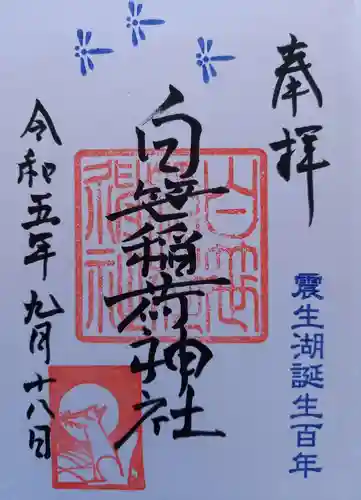 奉拝
白笹稲荷神社
令和五年九月十八日
震生湖誕生百年